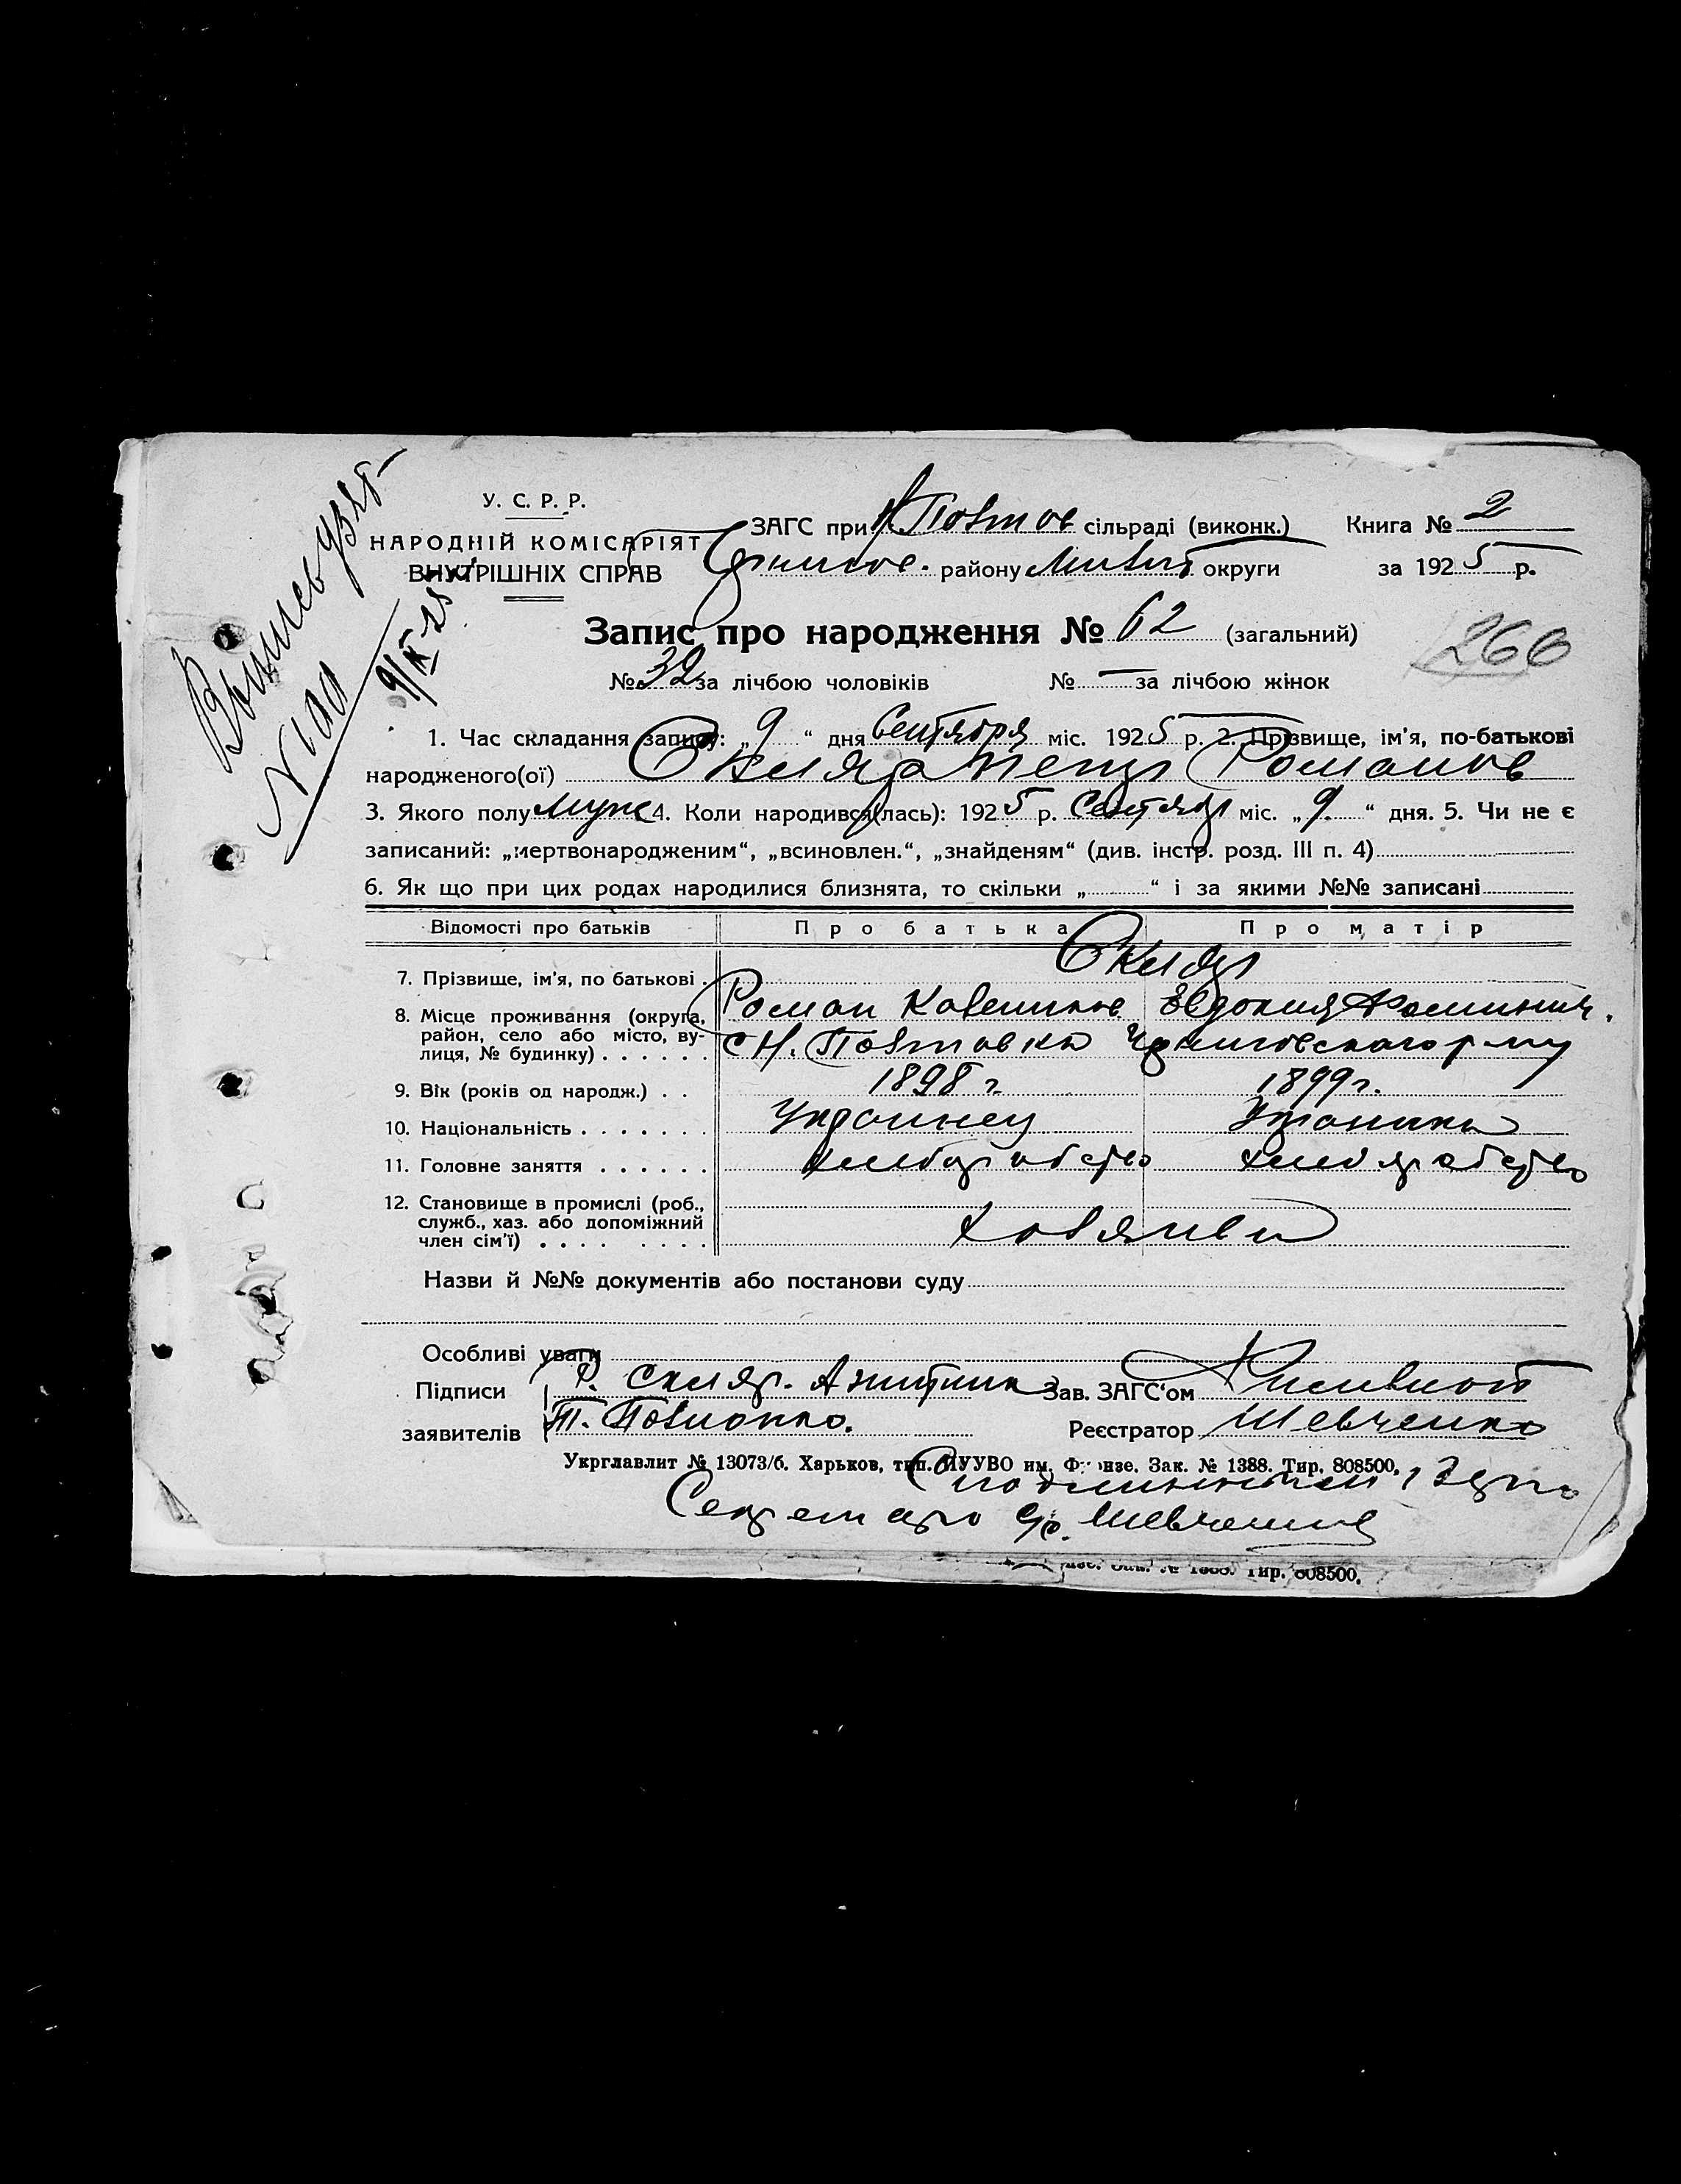 У. С. Р. Р.
НАРОДНІЙ КОМІСАРІЯТ
ВНУТРІШНІХ СПРАВ
ЗАГС при Н. Полтов сільраді (виконк.) Книга № 2
району округи за 1925 р.
№ 100
9/IX-25
Запис про народження № 62 (загальний)
266
№ 32 за лічбою чоловіків № — за лічбою жінок
1. Час складання запису: „ 9 “ дня Сентября міс. 1925 р. 2. Прізвище, ім'я, по-батькові
народженого(ої) Скляр Петр Романов
3. Якого полу Муж 4. Коли народився(лась): 1925 р. Сентябр міс. „ 9. “ дня. 5. Чи не є
записаний: „мертвонародженим“, „всиновлен.“, „знайденям“ (див. інстр. розд. III п. 4)
6. Як що при цих родах народилися близнята, то скільки „ “ і за якими №№ записані
Відомості про батьків Про батька Про матір
7. Прізвище, ім'я, по батькові . Скляр
Роман Евдокия
8. Місце проживання (округа, район, село або місто, вулиця, № будинку) . . . . . . с Н. Полтавка Черниговского р-ну
9. Вік (років од народж.) . . 1898 г. 1899 г.
10. Національність . . . . . . . Украинец Украинка
11. Головне заняття . . . . . . хлеборобство хлеборобство
12. Становище в промислі (роб., служб., хаз. або допоміжний член сім'ї) . . . . . . . . Хозяева
Назви й №№ документів або постанови суду
Особливі уваги
Підписи Р. Скляр. Зав. ЗАГС'ом
заявителів Т. Реєстратор Шевченко
Укрглавлит № 13073/б. Харьков, тип. ПУУВО им. Фрунзе. Зак. № 1388. Тир. 808500.
С подлинным верно
Секретарь Шевченко
Зак. № 1388. Тир. 808500.